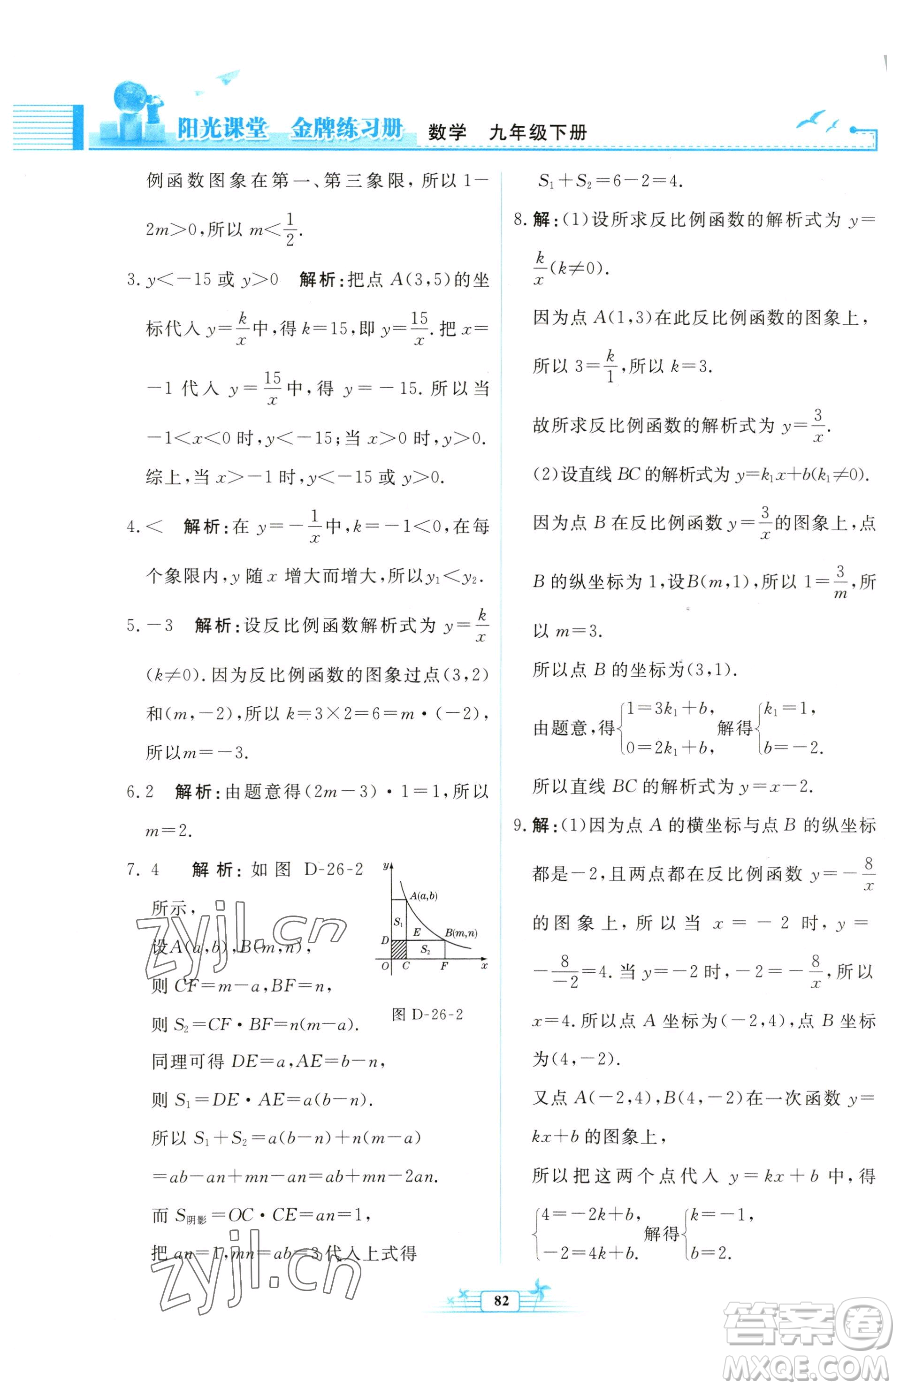 阳光课堂 金牌练习册 数学 九年级下册
例函数图象在第一、第三象限,所以1-
2m>0,所以 m<1/2.
3. y<-15 或 y>0 解析:把点 A(3,5)的坐
标代入 y=k/x中,得 k=15,即 y=15/x.把 x=
-1 代入 y=15/x 中,得 y=-15.所以当
-1<x<0 时,y<-15;当 x>0 时,y>0.
综上,当 x>-1 时,y<-15 或 y>0.
4. < 解析:在 y=-1/x中,k=-1<0,在每
个象限内,y 随 x 增大而增大,所以y₁<y₂.
5. -3 解析:设反比例函数解析式为 y=k/x
(k≠0).因为反比例函数的图象过点(3,2)
和(m,-2),所以 k=3×2=6=m·(-2),
所以m=-3.
6. 2 解析:由题意得(2m-3)·1=1,解得
m=2.
7. 4 解析:如图 D-26-2
所示,
设A(a,b),B(m,n),
则 CF=m-a,BF=n,
则 S₂=CF·BF=n(m-a).
同理可得 DE=a,AE=b-n,
则 S₁=DE·AE=a(b-n).
所以 S₁+S₂=a(b-n)+n(m-a)
=ab-an+mn-an=ab+mn-2an.
而 S阴影=OC·CE=an=1,
把 an=1,mn=ab=3代入上式得
y
A(a,b)
S₁
D E B(m,n)
S₂
O C F x
图 D-26-2
S₁+S₂=6-2=4.
8. 解:(1)设所求反比例函数的解析式为 y=
k/x(k≠0).
因为点 A(1,3)在此反比例函数的图象上,
所以 3=k/1,所以 k=3.
故所求反比例函数的解析式为 y=3/x.
(2)设直线 BC 的解析式为 y=k₁x+b(k₁≠0).
因为点 B 在反比例函数 y=3/x的图象上,点
B 的纵坐标为 1,设B(m,1),所以 1=3/m,所
以 m=3.
所以点 B 的坐标为(3,1).
由题意,得{1=3k₁+b, 0=2k₁+b, 解得{k₁=1, b=-2.
所以直线 BC 的解析式为 y=x-2.
9. 解:(1)因为点 A 的横坐标与点 B 的纵坐标
都是-2,且两点都在反比例函数 y=-8/x
的图象上,所以当 x=-2 时,y=
-8/-2=4.当 y=-2 时,-2=-8/x,所以
x=4.所以点 A 坐标为(-2,4),点 B 坐标
为(4,-2).
又点 A(-2,4),B(4,-2)在一次函数 y=
kx+b 的图象上,
所以把这两个点代入 y=kx+b 中,得
{4=-2k+b, -2=4k+b, 解得{k=-1, b=2.
82
zyjl.cn
zyjl.cn
答案圈
MXQE.COM